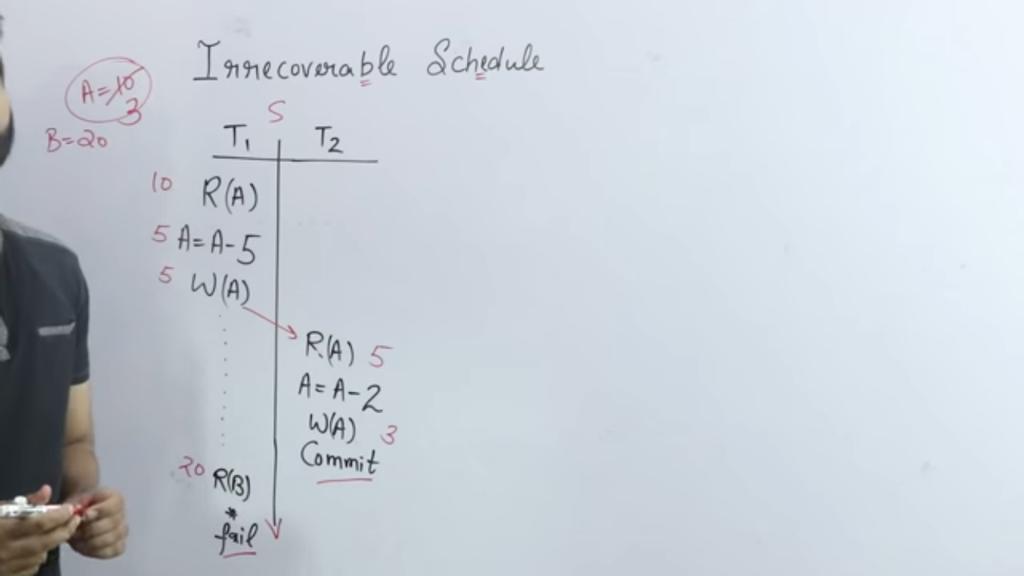 Irrecoverable Schedule
A=10
3
B=20
S
T1 T2
10 R(A)
5 A=A-5
5 W(A)
R(A) 5
A=A-2
W(A) 3
Commit
20 R(B)
*
fail